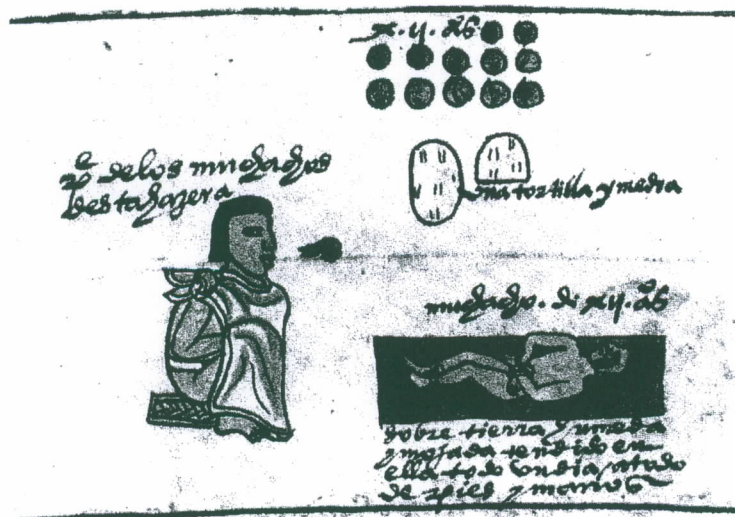 x.ij.aºs
pe de los muchachos
desta hazera
una tortilla y media
muchacho. de xij. aºs
sobre tierra umeda
y mojada tendido en
ella todo un dia, atado
de pies y manos